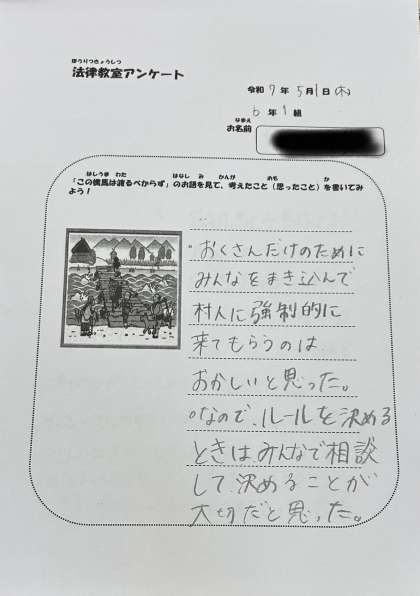 ほうりつきょうしつ
法律教室アンケート
令和 7 年 5 月 1 日 (木)
6 年 1 組
なまえ
お名前
はしうま わた はなし み かんが おも か
「この橋馬は渡るべからず」のお話を見て、考えたこと（思ったこと）を書いてみ
よう！
・おくさんだけのために
みんなをまき込んで
村人に強制的に
来てもらうのは
おかしいと思った。
○なので、ルールを決める
ときはみんなで相談
して、決めることが
大切だと思った。